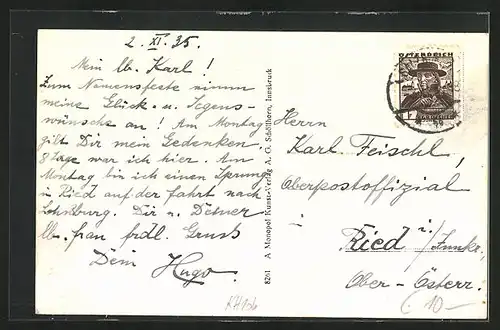 2. XI. 35.
Mein lb. Karl!
Zum Namensfeste nimm
meine Glück- u. Segens-
wünsche an! Am Montag
gilt Dir mein Gedenken.
8 Tage war ich hier. Am
Montag bin ich einen Sprung
in Ried auf der Fahrt nach
Lohnsburg. Dir u. Deiner
lb. Frau frdl. Gruß
Dein Hugo.
8261 A Monopol Kunst-Verlag A. G. Schöllhorn, Innsbruck
ÖSTERREICH
12
Herrn
Karl Feischl,
Oberpostoffizial
i
Ried i./Innkr.
Ober-Österr.
10-